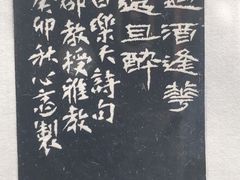 遇酒逢花
還且醉
白樂天詩句
邵教授雅教
癸卯秋心製